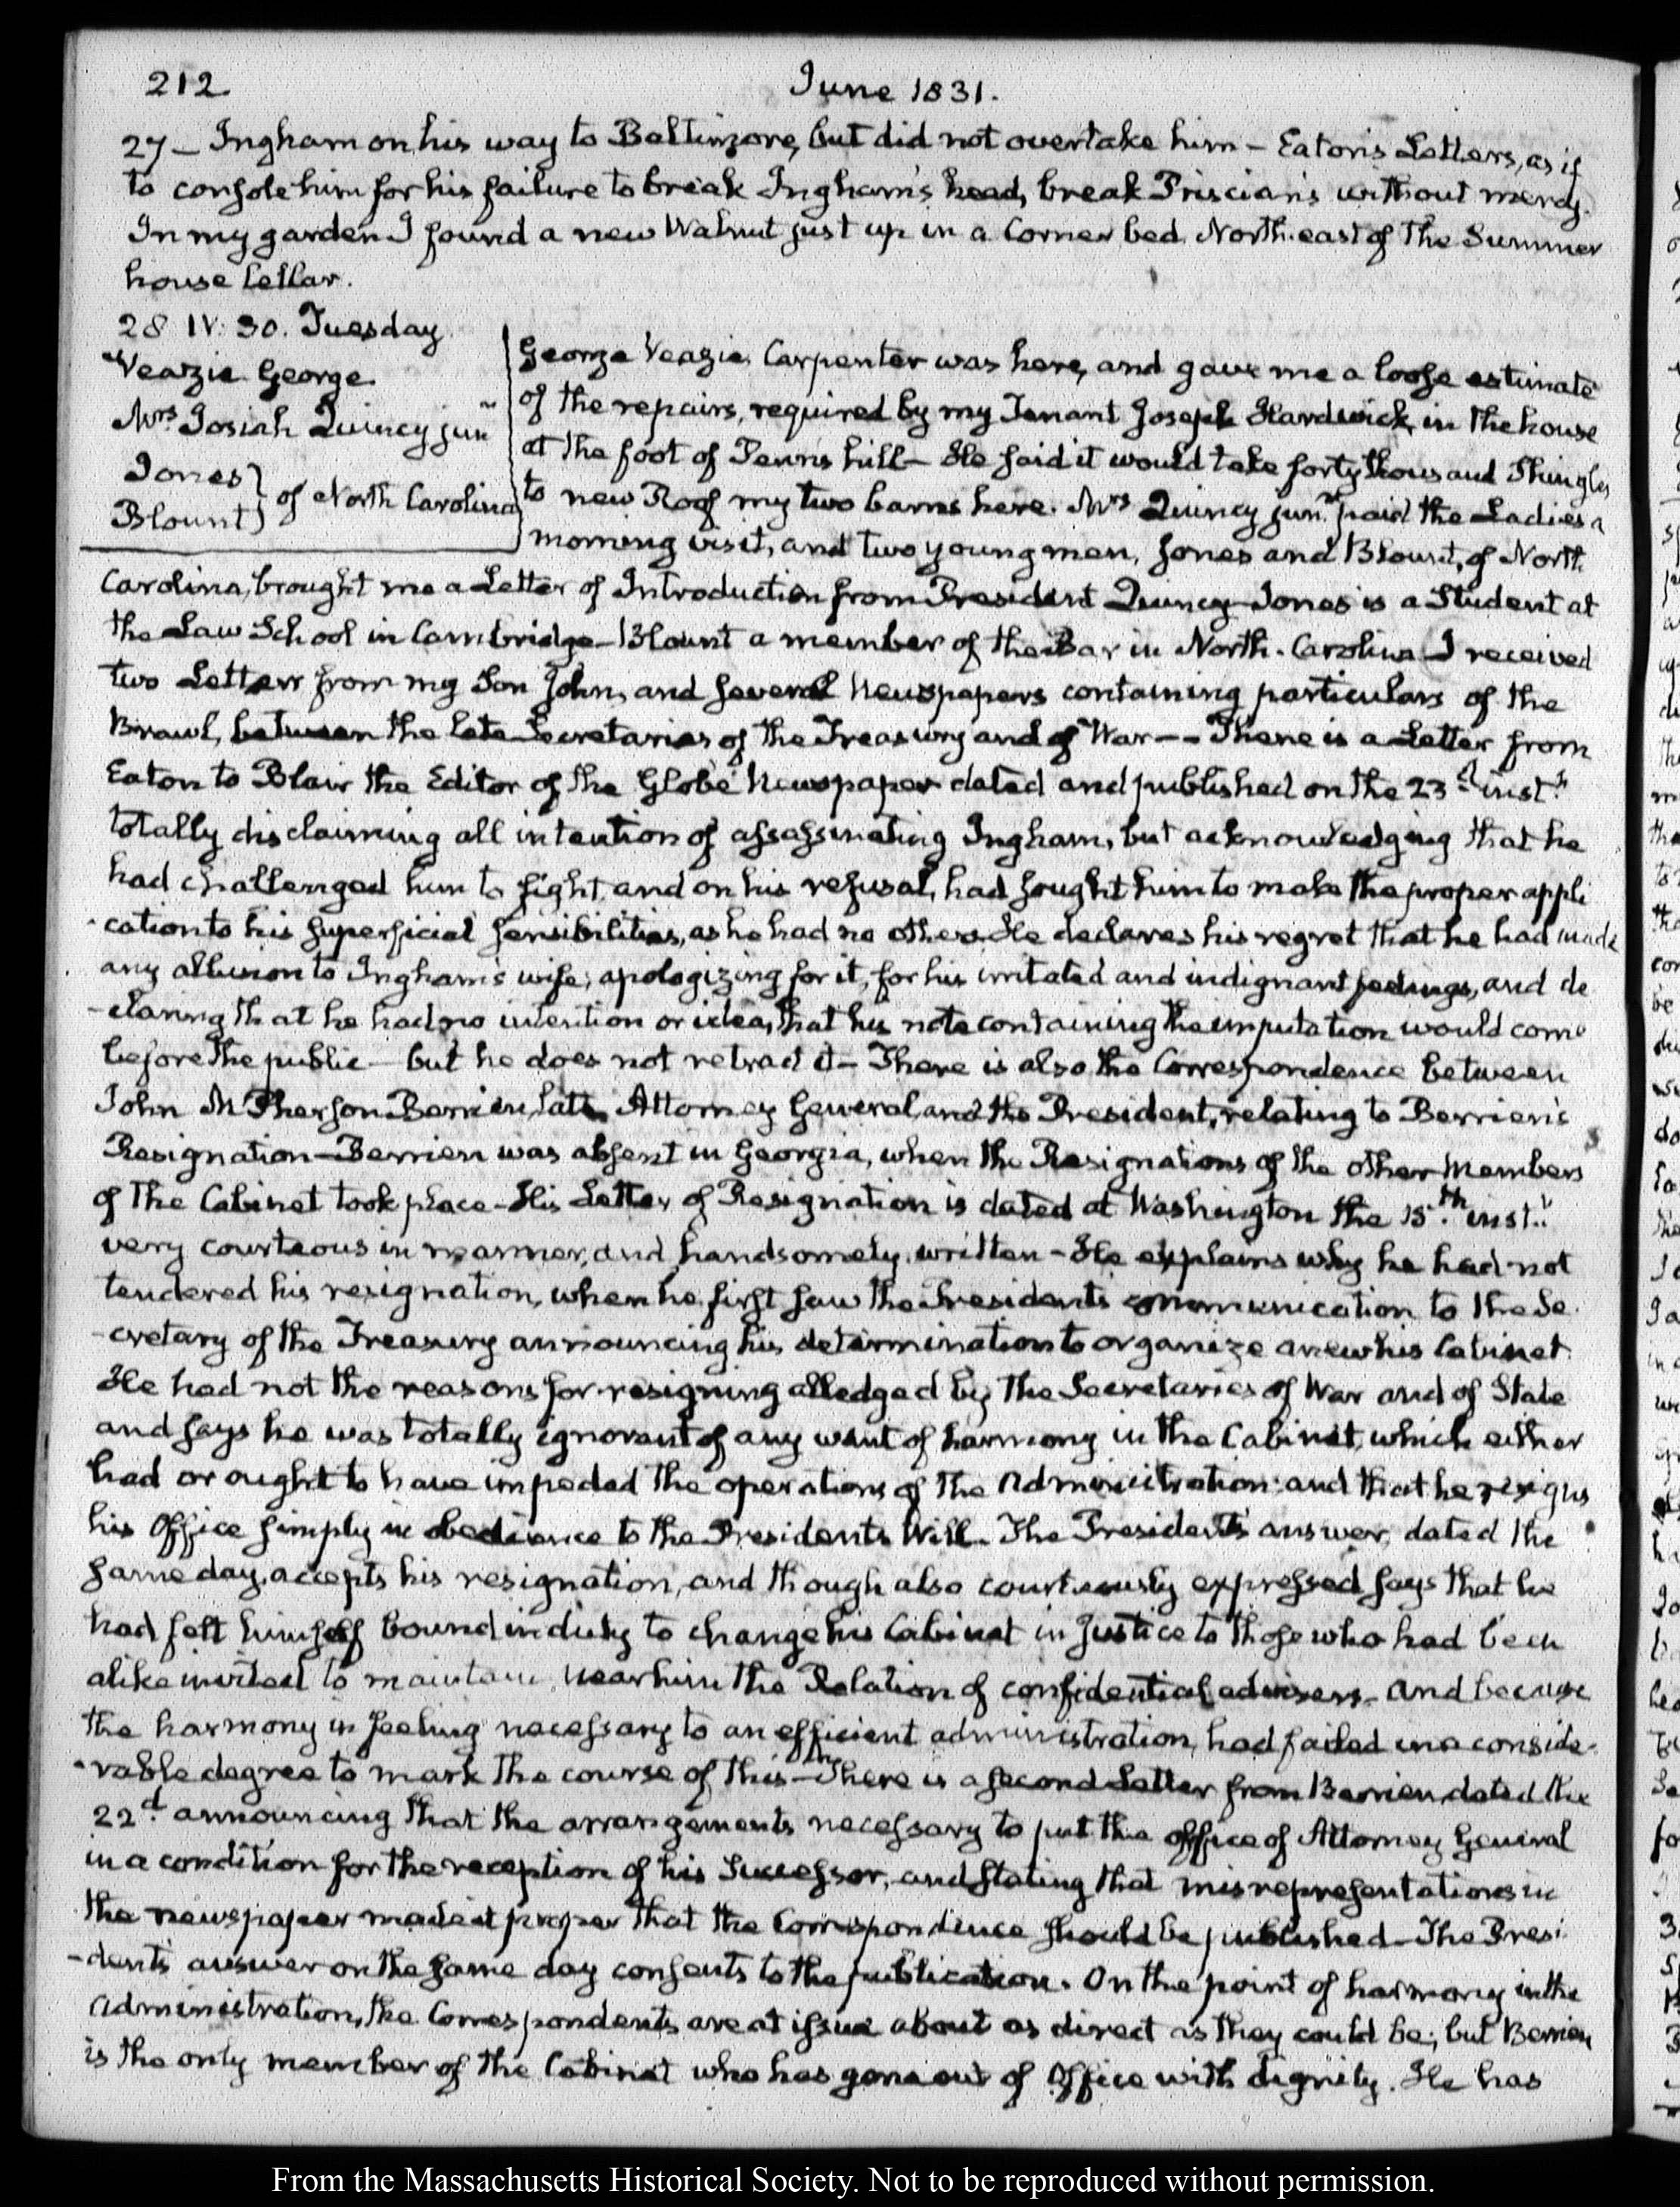 212
June 1831.
27 – Ingham on his way to Baltimore, but did not overtake him – Eaton's Letters, as if
to console him for his failure to break Ingham's head, break Priscian's without mercy.
In my garden I found a new Walnut just up in a Corner bed North-east of the Summer
house Cellar.
28 IV: 30. Tuesday
Veazie George.
Mrs. Josiah Quincy jun
Jones } of North Carolina
Blount }
George Veazie Carpenter was here, and gave me a loose estimate
of the repairs, required by my Tenant Joseph Hardwick, in the house
at the foot of Penns hill – He said it would take forty thousand Shingles
to new Roof my two barns here. Mrs Quincy junr. paid the Ladies a
morning visit, and two young men, Jones and Blount, of North
Carolina, brought me a Letter of Introduction from President Quincy – Jones is a Student at
the Law School in Cambridge – Blount a member of the Bar in North-Carolina I received
two Letters from my Son John, and several Newspapers containing particulars of the
Brawl, between the late Secretaries of the Treasury and of War – – There is a Letter from
Eaton to Blair the Editor of the Globe Newspaper dated and published on the 23d. inst.
totally disclaiming all intention of assassinating Ingham, but acknowledging that he
had challenged him to fight, and on his refusal, had sought him to make the proper appli
-cation to his superficial sensibilities, as he had no others. He declares his regret that he had made
any allusion to Ingham's wife; apologizing for it, for his irritated and indignant feelings, and de
-claring that he had no intention or idea, that his note containing the imputation would come
before the public – but he does not retract it – There is also the Correspondence between
John McPherson Berrien, late Attorney General, and the President, relating to Berrien's
Resignation – Berrien was absent in Georgia, when the Resignations of the other Members
of the Cabinet took place – His Letter of Resignation is dated at Washington the 15.th inst.
very courteous in manner, and handsomely written – He explains why he had not
tendered his resignation, when he first saw the President's communication to the Se
-cretary of the Treasury announcing his determination to organize anew his Cabinet.
He had not the reasons for resigning alledged by the Secretaries of War and of State
and says he was totally ignorant of any want of harmony in the Cabinet, which either
had or ought to have impeded the operations of the Administration: and that he resigns
his Office simply in obedience to the Presidents Will. The President's answer, dated the
same day, accepts his resignation, and though also courteously expressed says that he
had felt himself bound in duty to change his Cabinet in justice to those who had been
alike invited to maintain near him the Relation of confidential advisers – and because
the harmony in feeling necessary to an efficient administration, had failed in a conside-
-rable degree to mark the course of this – There is a second Letter from Berrien, dated the
22d. announcing that the arrangements necessary to put the office of Attorney General
in a condition for the reception of his Successor, and stating that misrepresentations in
the newspaper made it proper that the Correspondence should be published – The Presi
-dent's answer on the same day consents to the publication. On the point of harmony in the
Administration, the Correspondents are at issue about as direct as they could be; but Berrien
is the only member of the Cabinet who has gone out of Office with dignity. He has
From the Massachusetts Historical Society. Not to be reproduced without permission.